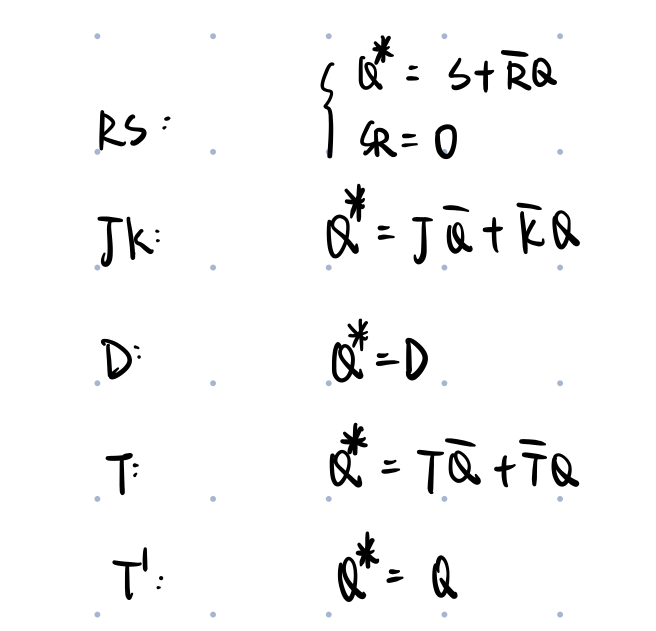 RS: { Q* = S + R̅Q
SR = 0
JK: Q* = JQ̅ + K̅Q
D: Q* = D
T: Q* = TQ̅ + T̅Q
T': Q* = Q